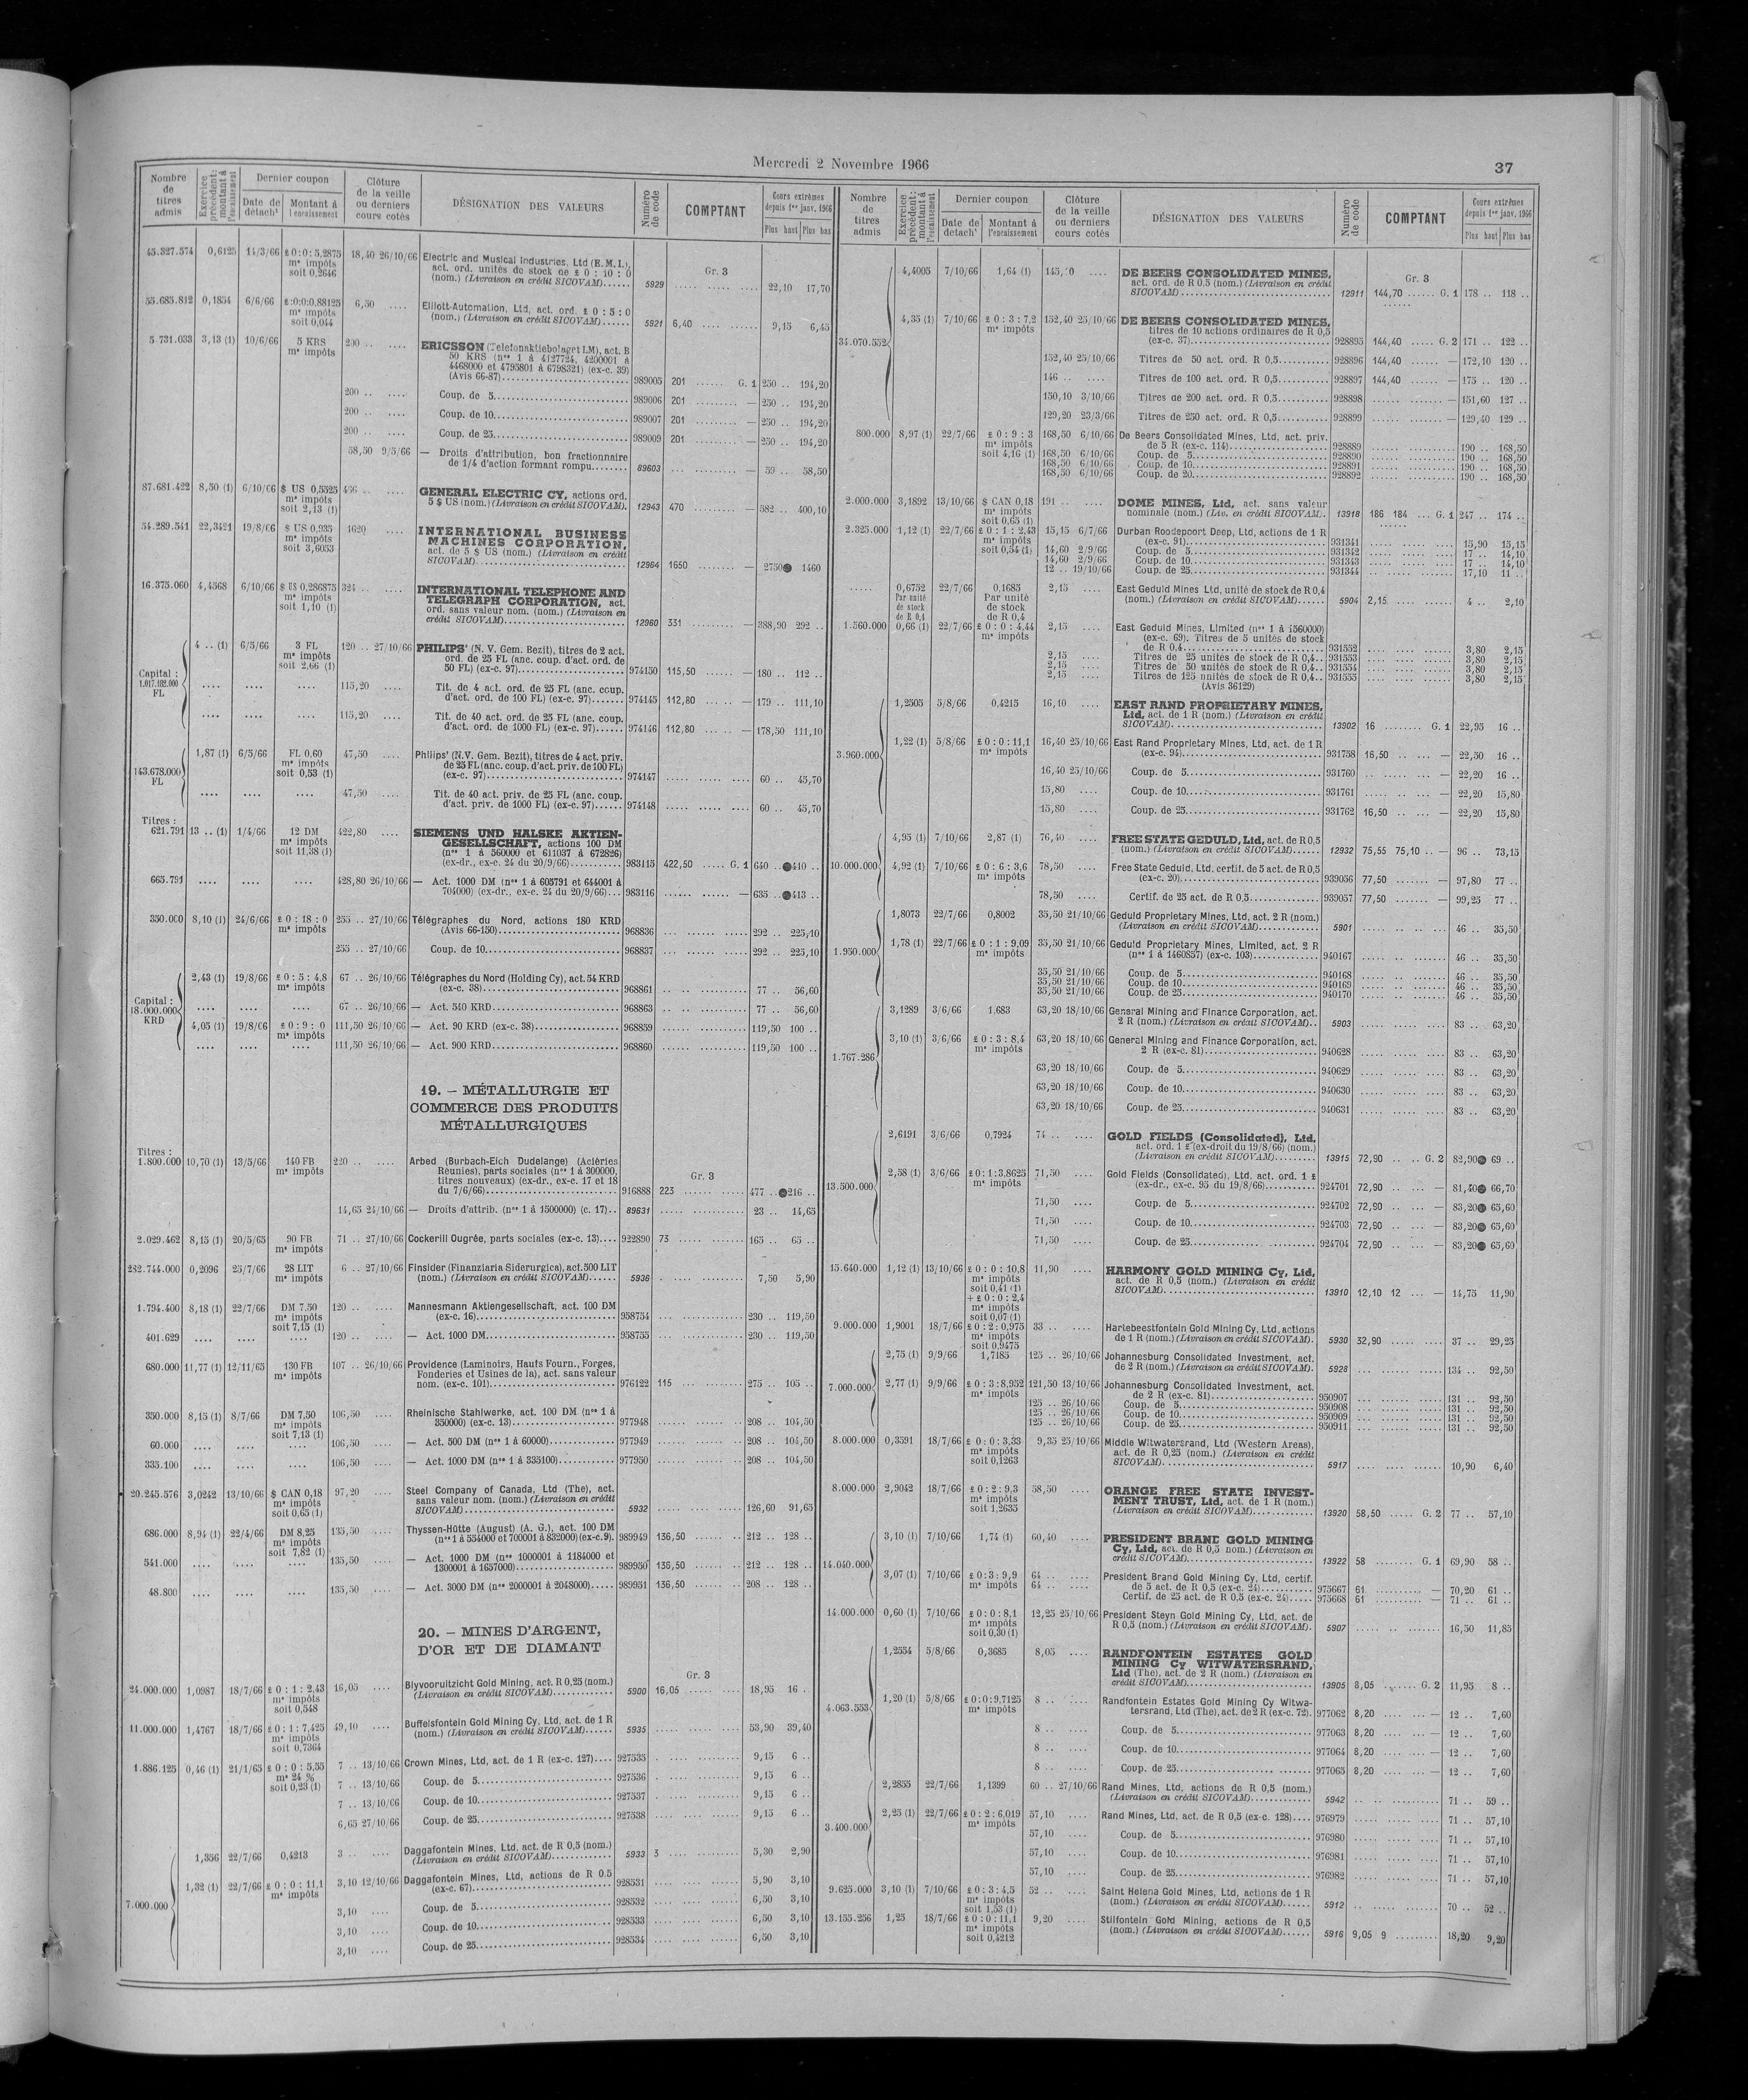 Mercredi 2 Novembre 1966
37
Nombre de titres admis
Exercice précédent : montant à l'encaissement
Dernier coupon
Date de détacht
Montant à l'encaissement
Clôture de la veille ou derniers cours cotés
DÉSIGNATION DES VALEURS
Numéro de code
COMPTANT
Cours extrêmes depuis 1er janv. 1966
Plus haut Plus bas
45.327.574 0,6125 14/3/66 £ 0:0:5,2875 18,40 26/10/66 Electric and Musical Industries, Ltd (E.M.I.),
ms impôts act. ord. unités de stock de £ 0 : 10 : 0 Gr. 3
soit 0,2646 (nom.) (Livraison en crédit SICOVAM)...... 5929 22,10 17,70
55.685.812 0,1854 6/6/66 £:0:0:0,88125 6,50 .... Elliott-Automation, Ltd, act. ord. £ 0 : 5 : 0
ms impôts (nom.) (Livraison en crédit SICOVAM)...... 5921 6,40 9,15 6,45
soit 0,044
5.731.033 3,13 (1) 10/6/66 5 KRS 200 .. .... ERICSSON (Telefonaktiebolaget LM), act. B
ms impôts 50 KRS (nos 1 à 4127724, 4250001 à
4468000 et 4795801 à 6798321) (ex-c. 39)
(Avis 66-87) 989005 201 ...... G. 1 250 .. 194,20
200 .. .... Coup. de 5 989006 201 — 250 .. 194,20
200 .. .... Coup. de 10 989007 201 — 250 .. 194,20
200 .. .... Coup. de 25 989009 201 — 250 .. 194,20
58,50 9/5/66 — Droits d'attribution, bon fractionnaire
de 1/4 d'action formant rompu 89603 — 59 .. 58,50
87.681.422 8,50 (1) 6/10/66 $ US 0,5525 466 .. .... GENERAL ELECTRIC CY, actions ord.
ms impôts 5 $ US (nom.) (Livraison en crédit SICOVAM). 12943 470 — 582 .. 400,10
soit 2,13 (1)
54.289.541 22,3421 19/8/66 $ US 0,935 1620 .... INTERNATIONAL BUSINESS
ms impôts MACHINES CORPORATION,
soit 3,6053 act. de 5 $ US (nom.) (Livraison en crédit
SICOVAM) 12964 1650 — 2750● 1460
16.375.060 4,4568 6/10/66 $ US 0,286875 324 .. .... INTERNATIONAL TELEPHONE AND
ms impôts TELEGRAPH CORPORATION, act.
soit 1,10 (1) ord. sans valeur nom. (nom.) (Livraison en
crédit SICOVAM) 12960 331 — 388,90 292 ..
4 .. (1) 6/5/66 3 FL 120 .. 27/10/66 PHILIPS' (N. V. Gem. Bezit), titres de 2 act.
ms impôts ord. de 25 FL (anc. coup. d'act. ord. de
soit 2,66 (1) 50 FL) (ex-c. 97) 974150 115,50 — 180 .. 112 ..
Capital :
1.017.182.000
FL
.... .... .... 115,20 .... Tit. de 4 act. ord. de 25 FL (anc. coup.
d'act. ord. de 100 FL) (ex-c. 97) 974145 112,80 — 179 .. 111,10
.... .... .... 115,20 .... Tit. de 40 act. ord. de 25 FL (anc. coup.
d'act. ord. de 1000 FL) (ex-c. 97) 974146 112,80 — 178,50 111,10
143.678.000
FL
1,87 (1) 6/5/66 FL 0,60 47,50 .... Philips' (N.V. Gem. Bezit), titres de 4 act. priv.
ms impôts de 25 FL (anc. coup. d'act. priv. de 100 FL)
soit 0,53 (1) (ex-c. 97) 974147 60 .. 45,70
.... .... .... 47,50 .... Tit. de 40 act. priv. de 25 FL (anc. coup.
d'act. priv. de 1000 FL) (ex-c. 97) 974148 60 .. 45,70
Titres :
621.791 13 .. (1) 1/4/66 12 DM 422,80 .... SIEMENS UND HALSKE AKTIEN-
ms impôts GESELLSCHAFT, actions 100 DM
soit 11,38 (1) (nos 1 à 560000 et 611037 à 672826)
(ex-dr., ex-c. 24 du 20/9/66) 983115 422,50 ..... G. 1 640 ..●410 ..
665.791 .... .... .... 428,80 26/10/66 — Act. 1000 DM (nos 1 à 605791 et 644001 à
704000) (ex-dr., ex-c. 24 du 20/9/66) 983116 — 635 ..●413 ..
350.000 8,10 (1) 24/6/66 £ 0 : 18 : 0 255 .. 27/10/66 Télégraphes du Nord, actions 180 KRD
ms impôts (Avis 66-150) 968836 292 .. 225,10
255 .. 27/10/66 Coup. de 10 968837 292 .. 225,10
Capital :
18.000.000
KRD
2,43 (1) 19/8/66 £ 0 : 5 : 4,8 67 .. 26/10/66 Télégraphes du Nord (Holding Cy), act. 54 KRD
ms impôts (ex-c. 38) 968861 77 .. 56,60
.... .... .... 67 .. 26/10/66 — Act. 540 KRD 968863 77 .. 56,60
4,05 (1) 19/8/66 £ 0 : 9 : 0 111,50 26/10/66 — Act. 90 KRD (ex-c. 38) 968859 119,50 100 ..
ms impôts
.... .... .... 111,50 26/10/66 — Act. 900 KRD 968860 119,50 100 ..
19. — MÉTALLURGIE ET
COMMERCE DES PRODUITS
MÉTALLURGIQUES
Titres :
1.800.000 10,70 (1) 13/5/66 140 FB 220 .. .... Arbed (Burbach-Eich Dudelange) (Aciéries
ms impôts Réunies), parts sociales (nos 1 à 300000,
titres nouveaux) (ex-dr., ex-c. 17 et 18 Gr. 3
du 7/6/66) 916888 223 477 ..●216 ..
14,65 24/10/66 — Droits d'attrib. (nos 1 à 1500000) (c. 17).. 89631 23 .. 14,65
2.029.462 8,15 (1) 20/5/65 90 FB 71 .. 27/10/66 Cockerill Ougrée, parts sociales (ex-c. 13).... 922890 73 165 .. 65 ..
ms impôts
282.744.000 0,2096 25/7/66 28 LIT 6 .. 27/10/66 Finsider (Finanziaria Siderurgica), act. 500 LIT
ms impôts (nom.) (Livraison en crédit SICOVAM)...... 5936 7,50 5,90
1.794.400 8,18 (1) 22/7/66 DM 7,50 120 .. .... Mannesmann Aktiengesellschaft, act. 100 DM
ms impôts (ex-c. 16) 958754 230 .. 119,50
soit 7,15 (1)
401.629 .... .... .... 120 .. .... — Act. 1000 DM 958755 230 .. 119,50
680.000 11,77 (1) 12/11/65 130 FB 107 .. 26/10/66 Providence (Laminoirs, Hauts Fourn., Forges,
ms impôts Fonderies et Usines de la), act. sans valeur
nom. (ex-c. 101) 976122 115 275 .. 105 ..
350.000 8,15 (1) 8/7/66 DM 7,50 106,50 .... Rheinische Stahlwerke, act. 100 DM (nos 1 à
ms impôts 350000) (ex-c. 13) 977948 208 .. 104,50
soit 7,13 (1)
60.000 .... .... .... 106,50 .... — Act. 500 DM (nos 1 à 60000) 977949 208 .. 104,50
335.100 .... .... .... 106,50 .... — Act. 1000 DM (nos 1 à 335100) 977950 208 .. 104,50
20.245.576 3,0242 13/10/66 $ CAN 0,18 97,20 .... Steel Company of Canada, Ltd (The), act.
ms impôts sans valeur nom. (nom.) (Livraison en crédit
soit 0,65 (1) SICOVAM) 5932 126,60 91,65
686.000 8,94 (1) 22/4/66 DM 8,25 135,50 .... Thyssen-Hütte (August) (A. G.), act. 100 DM
ms impôts (nos 1 à 554000 et 700001 à 832000) (ex-c. 9). 989949 136,50 212 .. 128 ..
soit 7,82 (1)
541.000 .... .... .... 135,50 .... — Act. 1000 DM (nos 1000001 à 1184000 et
1300001 à 1657000) 989950 136,50 212 .. 128 ..
48.800 .... .... .... 135,50 .... — Act. 3000 DM (nos 2000001 à 2048000) 989951 136,50 208 .. 128 ..
20. — MINES D'ARGENT,
D'OR ET DE DIAMANT
Gr. 3
24.000.000 1,0987 18/7/66 £ 0 : 1 : 2,43 16,05 .... Blyvooruitzicht Gold Mining, act. R 0,25 (nom.)
ms impôts (Livraison en crédit SICOVAM) 5900 16,05 18,95 16 ..
soit 0,548
11.000.000 1,4767 18/7/66 £ 0 : 1 : 7,425 49,10 .... Buffelsfontein Gold Mining Cy, Ltd, act. de 1 R
ms impôts (nom.) (Livraison en crédit SICOVAM)...... 5935 53,90 39,40
soit 0,7364
1.886.125 0,46 (1) 21/1/65 £ 0 : 0 : 5,55 7 .. 13/10/66 Crown Mines, Ltd, act. de 1 R (ex-c. 127).... 927535 9,15 6 ..
ms 24 % 7 .. 13/10/66 Coup. de 5 927536 9,15 6 ..
soit 0,23 (1) 7 .. 13/10/66 Coup. de 10 927537 9,15 6 ..
6,65 27/10/66 Coup. de 25 927538 9,15 6 ..
7.000.000
1,356 22/7/66 0,4213 3 .. .... Daggafontein Mines, Ltd, act. de R 0,5 (nom.)
(Livraison en crédit SICOVAM) 5933 3 5,30 2,90
1,32 (1) 22/7/66 £ 0 : 0 : 11,1 3,10 12/10/66 Daggafontein Mines, Ltd, actions de R 0.5
ms impôts (ex-c. 67) 928531 5,90 3,10
3,10 .... Coup. de 5 928532 6,50 3,10
3,10 .... Coup. de 10 928533 6,50 3,10
3,10 .... Coup. de 25 928534 6,50 3,10
Nombre de titres admis
Exercice précédent : montant à l'encaissement
Dernier coupon
Date de détacht
Montant à l'encaissement
Clôture de la veille ou derniers cours cotés
DÉSIGNATION DES VALEURS
Numéro de code
COMPTANT
Cours extrêmes depuis 1er janv. 1966
Plus haut Plus bas
34.070.552
4,4005 7/10/66 1,64 (1) .... DE BEERS CONSOLIDATED MINES,
act. ord. de R 0.5 (nom.) (Livraison en crédit Gr. 3
SICOVAM) 12911 144,70 ...... G. 1 178 .. 118 ..
4,35 (1) 7/10/66 £ 0 : 3 : 7,2 152,40 25/10/66 DE BEERS CONSOLIDATED MINES,
ms impôts titres de 10 actions ordinaires de R 0,5
(ex-c. 37) 928895 144,40 ..... G. 2 171 .. 122 ..
152,40 25/10/66 Titres de 50 act. ord. R 0,5 928896 144,40 — 172,10 120 ..
146 .. .... Titres de 100 act. ord. R 0,5 928897 144,40 — 175 .. 120 ..
150,10 3/10/66 Titres de 200 act. ord. R 0,5 928898 — 151,60 127 ..
129,20 23/3/66 Titres de 250 act. ord. R 0,5 928899 — 129,40 129 ..
800.000 8,97 (1) 22/7/66 £ 0 : 9 : 3 168,50 6/10/66 De Beers Consolidated Mines, Ltd, act. priv.
ms impôts de 5 R (ex-c. 114) 928889 190 .. 168,50
soit 4,16 (1) 168,50 6/10/66 Coup. de 5 928890 190 .. 168,50
168,50 6/10/66 Coup. de 10 928891 190 .. 168,50
168,50 6/10/66 Coup. de 20 928892 190 .. 168,50
2.000.000 3,1892 13/10/66 $ CAN 0,18 191 .. .... DOME MINES, Ltd, act. sans valeur
ms impôts nominale (nom.) (Liv. en crédit SICOVAM). 13918 186 184 ... G. 1 247 .. 174 ..
soit 0,65 (1)
2.325.000 1,12 (1) 22/7/66 £ 0 : 1 : 2,43 15,15 6/7/66 Durban Roodepoort Deep, Ltd, actions de 1 R
ms impôts (ex-c. 91) 931341 15,90 15,15
soit 0,54 (1) 14,60 2/9/66 Coup. de 5 931342 17 .. 14,10
14,60 2/9/66 Coup. de 10 931343 17 .. 14,10
12 .. 19/10/66 Coup. de 25 931344 17,10 11 ..
...... 0,6752 22/7/66 0,1685 2,15 .... East Geduld Mines Ltd, unité de stock de R 0,4
Par unité de stock de R 0,4 Par unité de stock de R 0,4 (nom.) (Livraison en crédit SICOVAM)...... 5904 2,15 4 .. 2,10
1.560.000 0,66 (1) 22/7/66 £ 0 : 0 : 4,44 2,15 .... East Geduld Mines, Limited (nos 1 à 1560000)
ms impôts (ex-c. 69). Titres de 5 unités de stock
de R 0,4 931552 3,80 2,15
2,15 .... Titres de 25 unités de stock de R 0,4.. 931553 3,80 2,15
2,15 .... Titres de 50 unités de stock de R 0,4.. 931554 3,80 2,15
2,15 .... Titres de 125 unités de stock de R 0,4.. 931555 3,80 2,15
(Avis 36129)
3.960.000
1,2505 5/8/66 0,4215 16,10 .... EAST RAND PROPRIETARY MINES,
Ltd, act. de 1 R (nom.) (Livraison en crédit
SICOVAM) 13902 16 ........ G. 1 22,95 16 ..
1,22 (1) 5/8/66 £ 0 : 0 : 11,1 16,40 25/10/66 East Rand Proprietary Mines, Ltd, act. de 1 R
ms impôts (ex-c. 94) 931758 16,50 — 22,50 16 ..
16,40 25/10/66 Coup. de 5 931760 — 22,20 16 ..
15,80 .... Coup. de 10 931761 — 22,20 15,80
15,80 .... Coup. de 25 931762 16,50 — 22,20 15,80
10.000.000
4,95 (1) 7/10/66 2,87 (1) 76,40 .... FREE STATE GEDULD, Ltd, act. de R 0,5
(nom.) (Livraison en crédit SICOVAM)...... 12932 75,55 75,10 .. — 96 .. 73,15
4,92 (1) 7/10/66 £ 0 : 6 : 3,6 78,50 .... Free State Geduld, Ltd, certif. de 5 act. de R 0,5
ms impôts (ex-c. 20) 939056 77,50 — 97,80 77 ..
78,50 .... Certif. de 25 act. de R 0,5 939057 77,50 — 99,25 77 ..
1.950.000
1,8073 22/7/66 0,8002 35,50 21/10/66 Geduld Proprietary Mines, Ltd, act. 2 R (nom.)
(Livraison en crédit SICOVAM) 5901 46 .. 35,50
1,78 (1) 22/7/66 £ 0 : 1 : 9,09 35,50 21/10/66 Geduld Proprietary Mines, Limited, act. 2 R
ms impôts (nos 1 à 1460857) (ex-c. 103) 940167 46 .. 35,50
35,50 21/10/66 Coup. de 5 940168 46 .. 35,50
35,50 21/10/66 Coup. de 10 940169 46 .. 35,50
35,50 21/10/66 Coup. de 25 940170 46 .. 35,50
1.767.286
3,1289 3/6/66 1,683 63,20 18/10/66 General Mining and Finance Corporation, act.
2 R (nom.) (Livraison en crédit SICOVAM).. 5903 83 .. 63,20
3,10 (1) 3/6/66 £ 0 : 3 : 8,4 63,20 18/10/66 General Mining and Finance Corporation, act.
ms impôts 2 R (ex-c. 81) 940628 83 .. 63,20
63,20 18/10/66 Coup. de 5 940629 83 .. 63,20
63,20 18/10/66 Coup. de 10 940630 83 .. 63,20
63,20 18/10/66 Coup. de 25 940631 83 .. 63,20
13.500.000
2,6191 3/6/66 0,7924 74 .. .... GOLD FIELDS (Consolidated), Ltd,
act. ord. 1 £ (ex-droit du 19/8/66) (nom.)
(Livraison en crédit SICOVAM) 13915 72,90 .. .. G. 2 82,90● 69 ..
2,58 (1) 3/6/66 £ 0:1:3,8625 71,50 .... Gold Fields (Consolidated), Ltd, act. ord. 1 £
ms impôts (ex-dr., ex-c. 95 du 19/8/66) 924701 72,90 — 81,40● 66,70
71,50 .... Coup. de 5 924702 72,90 — 83,20● 65,60
71,50 .... Coup. de 10 924703 72,90 — 83,20● 65,60
71,50 .... Coup. de 25 924704 72,90 — 83,20● 65,60
15.640.000 1,12 (1) 13/10/66 £ 0 : 0 : 10,8 11,90 .... HARMONY GOLD MINING Cy, Ltd,
ms impôts act. de R 0,5 (nom.) (Livraison en crédit
soit 0,41 (1) SICOVAM) 13910 12,10 12 ... — 14,75 11,90
+ £ 0 : 0 : 2,4
ms impôts
soit 0,07 (1)
9.000.000 1,9001 18/7/66 £ 0 : 2 : 0,975 33 .. .... Hartebeestfontein Gold Mining Cy, Ltd, actions
ms impôts de 1 R (nom.) (Livraison en crédit SICOVAM). 5930 32,90 37 .. 29,25
soit 0,9475
7.000.000
2,75 (1) 9/9/66 1,7185 125 .. 26/10/66 Johannesburg Consolidated Investment, act.
de 2 R (nom.) (Livraison en crédit SICOVAM). 5928 134 .. 92,50
2,77 (1) 9/9/66 £ 0 : 3 : 8,952 121,50 13/10/66 Johannesburg Consolidated Investment, act.
ms impôts de 2 R (ex-c. 81) 950907 131 .. 92,50
125 .. 26/10/66 Coup. de 5 950908 131 .. 92,50
125 .. 26/10/66 Coup. de 10 950909 131 .. 92,50
125 .. 26/10/66 Coup. de 25 950911 131 .. 92,50
8.000.000 0,3591 18/7/66 £ 0 : 0 : 3,33 9,35 25/10/66 Middle Witwatersrand, Ltd (Western Areas),
ms impôts act. de R 0,25 (nom.) (Livraison en crédit
soit 0,1263 SICOVAM) 5917 10,90 6,40
8.000.000 2,9042 18/7/66 £ 0 : 2 : 9,3 58,50 .... ORANGE FREE STATE INVEST-
ms impôts MENT TRUST, Ltd, act. de 1 R (nom.)
soit 1,2635 (Livraison en crédit SICOVAM) 13920 58,50 ..... G. 2 77 .. 57,10
14.040.000
3,10 (1) 7/10/66 1,74 (1) 60,40 .... PRESIDENT BRAND GOLD MINING
Cy, Ltd, act. de R 0,5 nom.) (Livraison en
crédit SICOVAM) 13922 58 ........ G. 1 69,90 58 ..
3,07 (1) 7/10/66 £ 0 : 3 : 9,9 64 .. .... President Brand Gold Mining Cy, Ltd, certif.
ms impôts de 5 act. de R 0,5 (ex-c. 24) 975667 61 — 70,20 61 ..
64 .. .... Certif. de 25 act. de R 0,5 (ex-c. 24) 975668 61 — 71 .. 61 ..
14.000.000 0,60 (1) 7/10/66 £ 0 : 0 : 8,1 12,25 25/10/66 President Steyn Gold Mining Cy, Ltd, act. de
ms impôts R 0,5 (nom.) (Livraison en crédit SICOVAM). 5907 16,50 11,85
soit 0,30 (1)
4.063.553
1,2554 5/8/66 0,3685 8,05 .... RANDFONTEIN ESTATES GOLD
MINING Cy WITWATERSRAND,
Ltd (The), act. de 2 R (nom.) (Livraison en
crédit SICOVAM) 13905 8,05 ...... G. 2 11,95 8 ..
1,20 (1) 5/8/66 £ 0:0:9,7125 8 .. .... Randfontein Estates Gold Mining Cy Witwa-
ms impôts tersrand, Ltd (The), act. de 2 R (ex-c. 72). 977062 8,20 — 12 .. 7,60
8 .. .... Coup. de 5 977063 8,20 — 12 .. 7,60
8 .. .... Coup. de 10 977064 8,20 — 12 .. 7,60
8 .. .... Coup. de 25 977065 8,20 — 12 .. 7,60
3.400.000
2,2855 22/7/66 1,1399 60 .. 27/10/66 Rand Mines, Ltd, actions de R 0,5 (nom.)
(Livraison en crédit SICOVAM) 5942 71 .. 59 ..
2,25 (1) 22/7/66 £ 0 : 2 : 6,019 57,10 .... Rand Mines, Ltd, act. de R 0,5 (ex-c. 128).... 976979 71 .. 57,10
ms impôts 57,10 .... Coup. de 5 976980 71 .. 57,10
57,10 .... Coup. de 10 976981 71 .. 57,10
57,10 .... Coup. de 25 976982 71 .. 57,10
9.625.000 3,10 (1) 7/10/66 £ 0 : 3 : 4,5 52 .. .... Saint Helena Gold Mines, Ltd, actions de 1 R
ms impôts (nom.) (Livraison en crédit SICOVAM)...... 5912 70 .. 52 ..
soit 1,53 (1)
13.155.256 1,25 18/7/66 £ 0 : 0 : 11,1 9,20 .... Stilfontein Gold Mining, actions de R 0,5
ms impôts (nom.) (Livraison en crédit SICOVAM)...... 5916 9,05 9 18,20 9,20
soit 0,4212